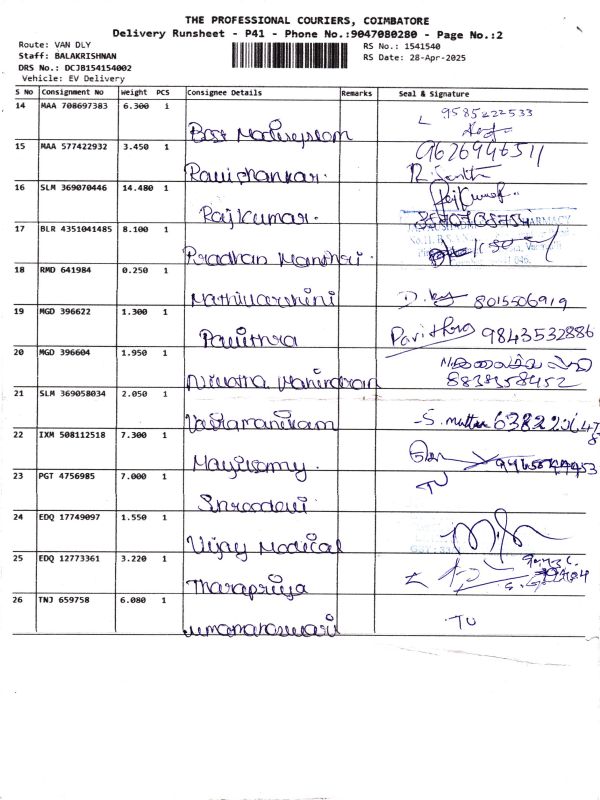 THE PROFESSIONAL COURIERS, COIMBATORE
Delivery Runsheet - P41 - Phone No.:9047080280 - Page No.:2
Route: VAN DLY
RS No.: 1541540
Staff: BALAKRISHNAN
RS Date: 28-Apr-2025
DRS No.: DCJB154154002
Vehicle: EV Delivery
S No Consignment No Weight PCS Consignee Details Remarks Seal & Signature
14 MAA 708697383 6.300 1
9585222533
15 MAA 577422932 3.450 1
9626946511
Ravishankar.
16 SLM 369070446 14.480 1
Rajkumar
Rajkumar.
17 BLR 4351041485 8.100 1
PHARMACY
Pradhan Manthri.
18 RMD 641984 0.250 1
Mathivarshini
8015506919
19 MGD 396622 1.300 1
Pavithra 9843532886
Pavithra
20 MGD 396604 1.950 1
8838358452
21 SLM 369058034 2.050 1
S. muttu
22 IXM 508112518 7.300 1
23 PGT 4756985 7.000 1
TU
Shreedevi
24 EDQ 17749097 1.550 1
Vijay Medical
25 EDQ 12773361 3.220 1
Tharapriya
26 TNJ 659758 6.080 1
TU
Umamaheswari